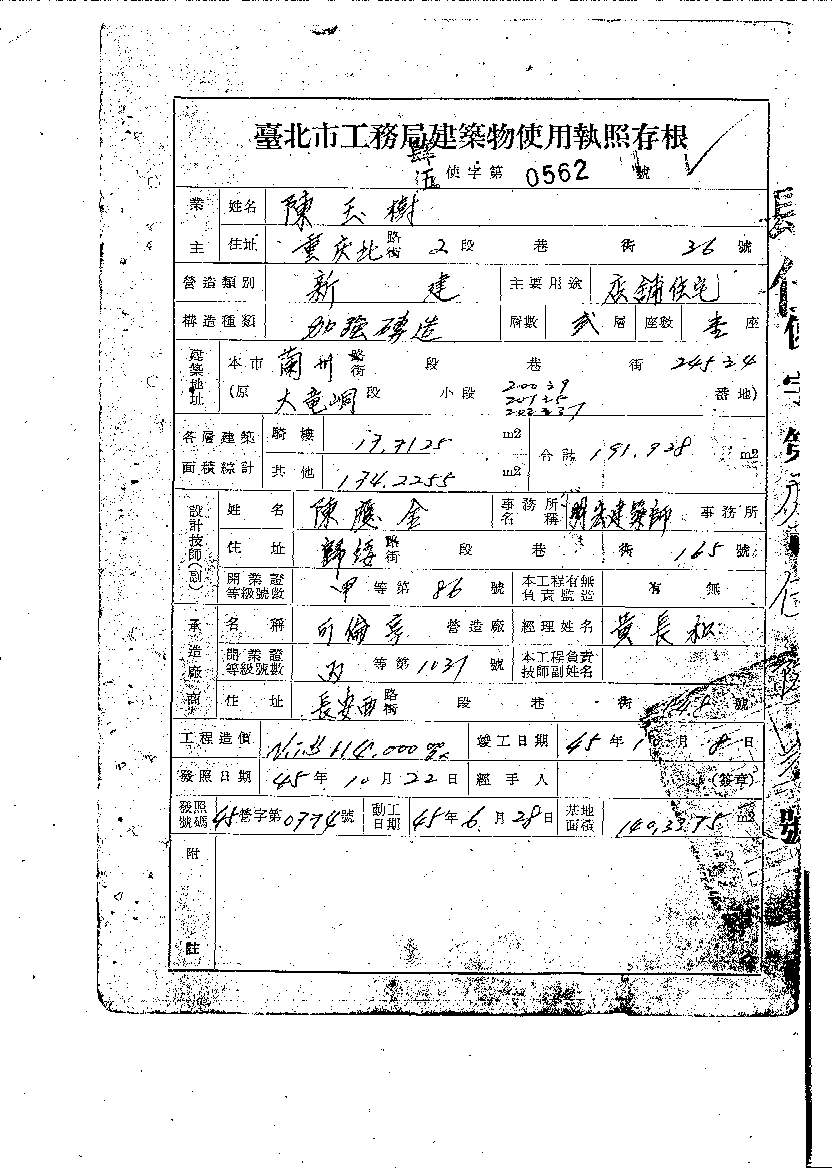 臺北市工務局建築物使用執照存根
肆伍 使字第 0562 號
業主 姓名 陳玉樹
住址 重庆北 路街 2 段 巷 街 26 號
營造類別 新建 主要用途 店舖住宅
構造種類 加強磚造 層數 弍 層 座數 壹 座
建築地址 本市 蘭州 路街 段 巷 街
(原 大竜峒 段 小段 番地)
各層建築面積綜計 騎樓 17.7125 m2 合計 191.938 m2
其他 174.2255 m2
設計技師(副) 姓名 陳應金 事務所名稱 建築師 事務所
住址 歸綏 路街 段 巷 街 165 號
開業證等級號數 甲 等第 86 號 本工程有無負責監造 有 無
承造廠商 名稱 可倫亭 營造廠 經理姓名 黃長松
開業證等級號數 丙 等第 1037 號 本工程負責技師副姓名
住址 長安西 路街 段 巷 街 號
工程造價 114,000 竣工日期 45年 月 8日
發照日期 45年10月22日 經手人 (簽章)
發照號碼 45營字第0774號 動工日期 45年6月28日 基地面積 140.3375 m2
附註